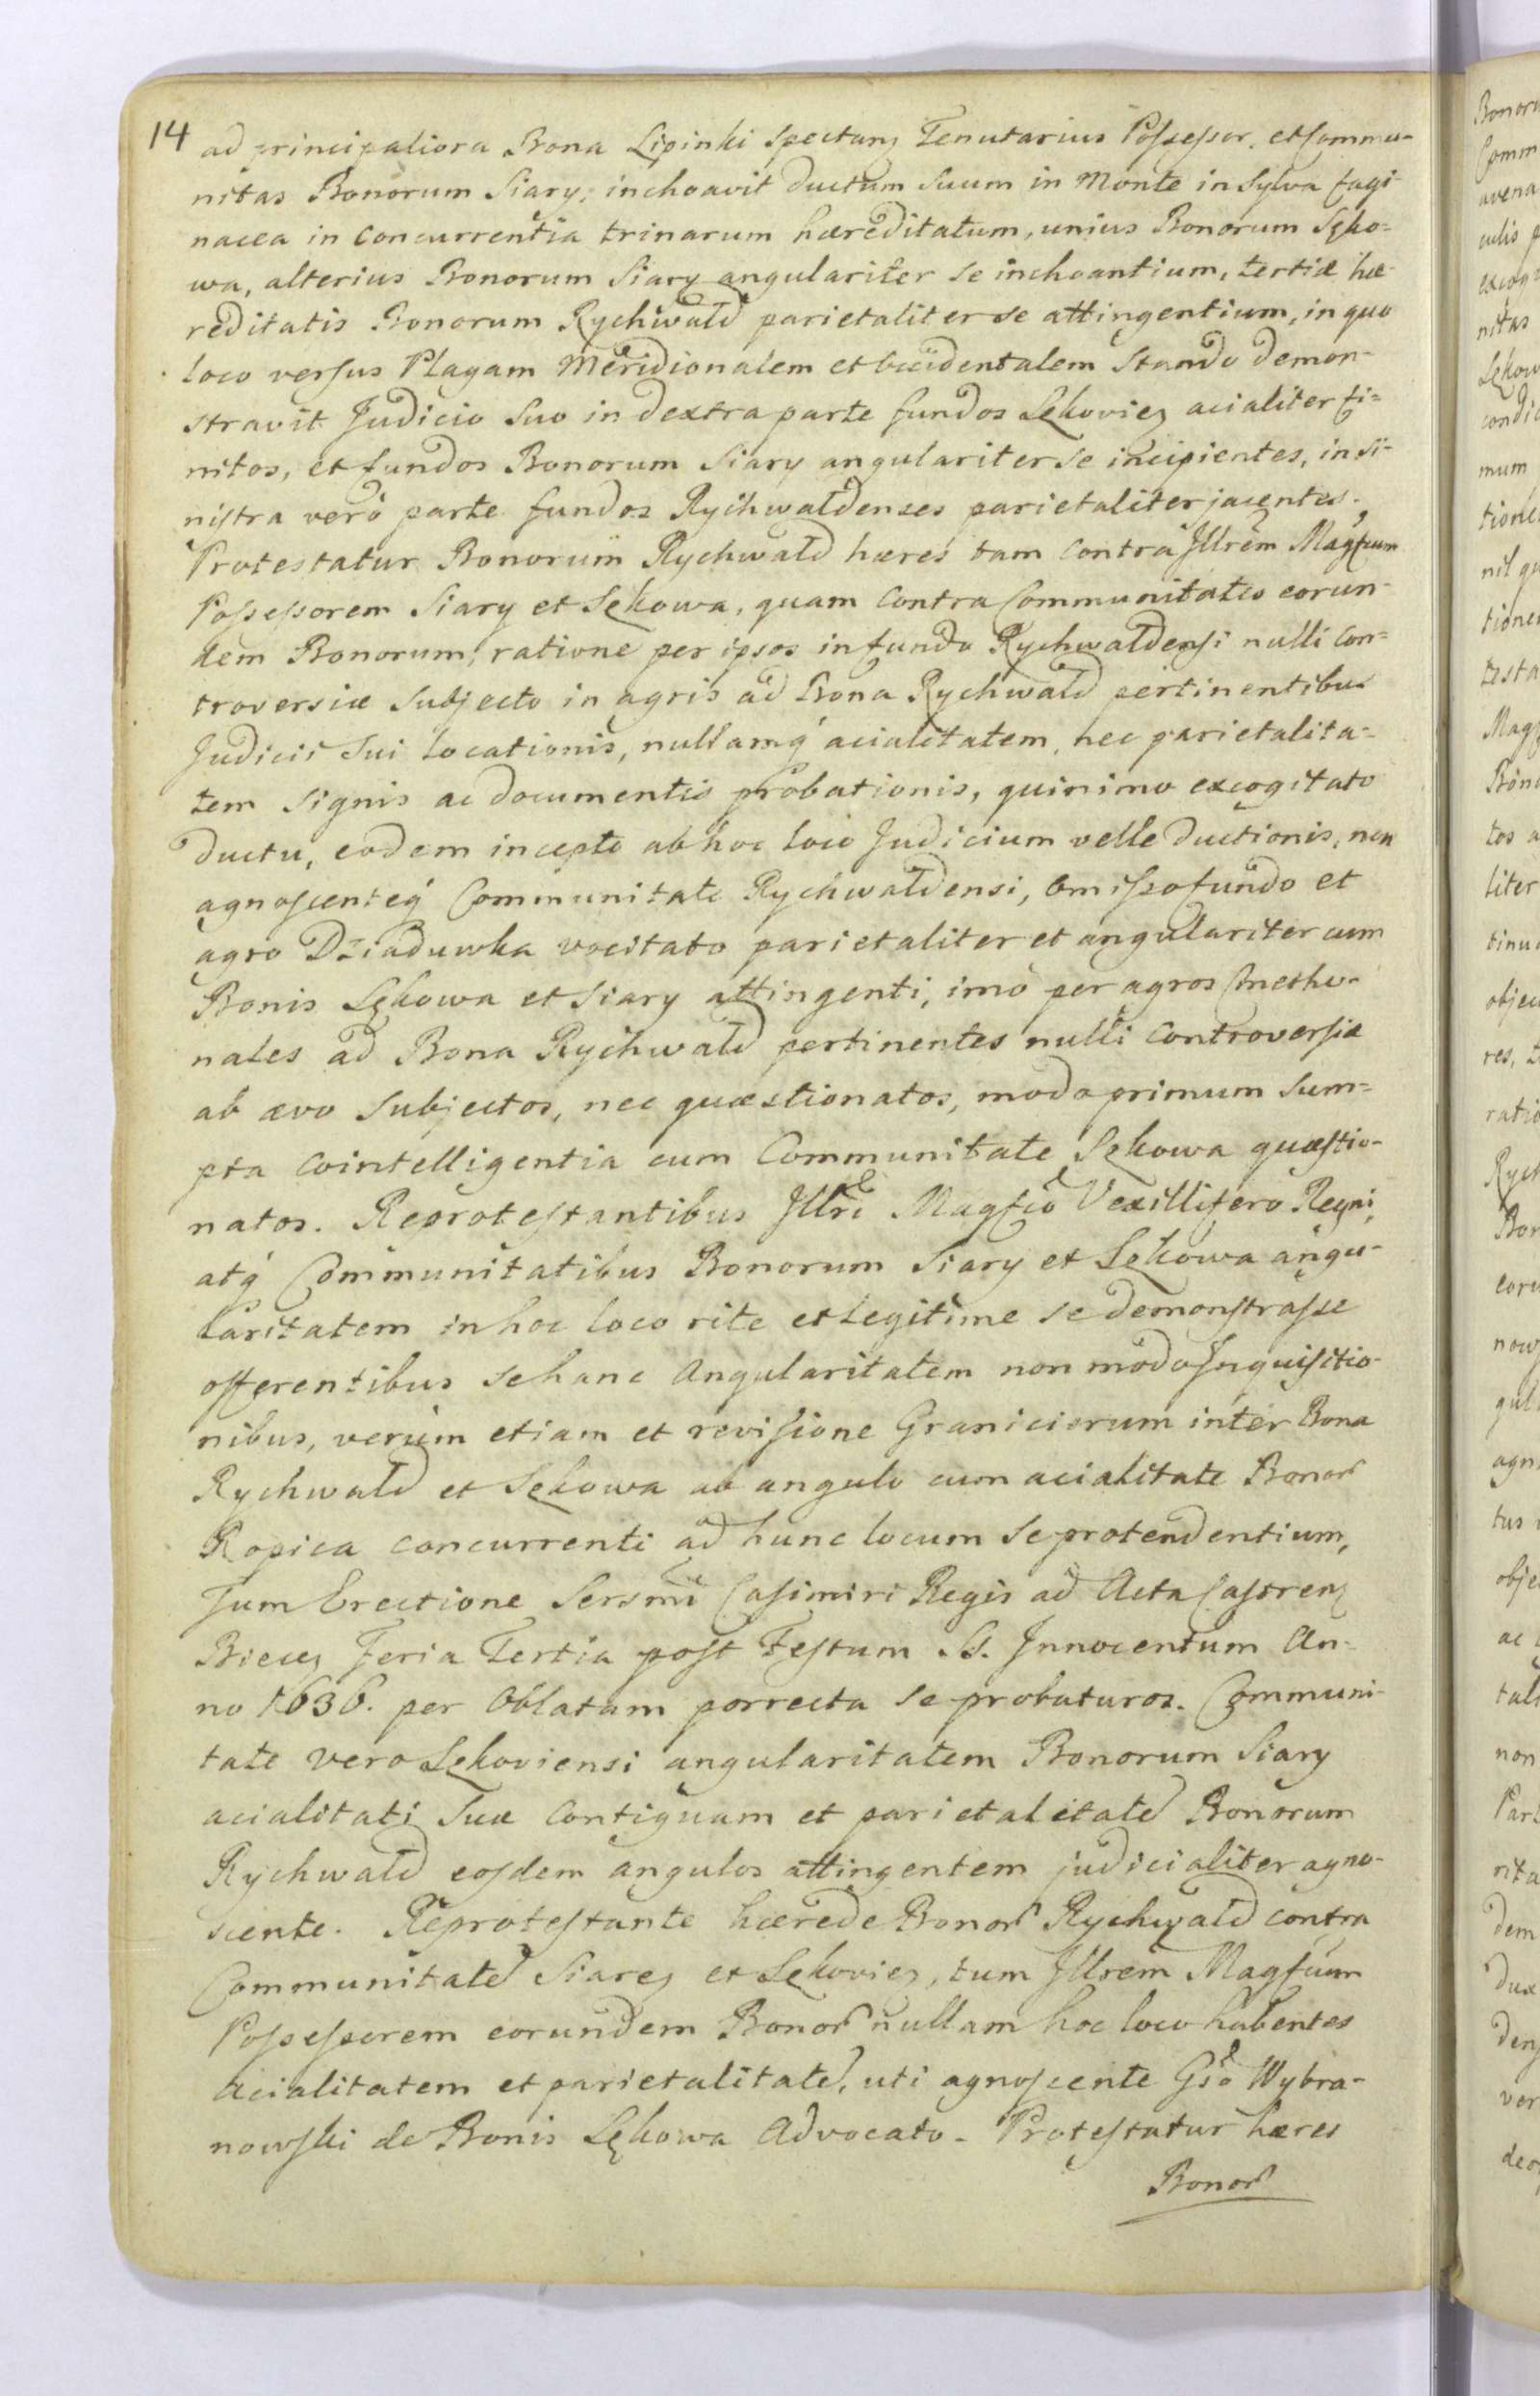 14
ad principaliora Bona Lipinki Spectanz Tenutarius Possessor, et Commu-
nitas Bonorum Siary, inchoavit ductum suum in Monte in Sylva fagi-
nacea in Concurrentia trinarum hæreditatum, unius Bonorum Sęko-
wa, alterius Bonorum Siary angulariter se inchoantium, tertiæ hæ-
reditatis Bonorum Rychwald parietaliter se attingentium, in quo
loco versus Plagam Meridionalem et occidentalem Stando demon-
stravit Judicio Suo in dextra parte fundos Sękoviez acialiter fi-
nitos, et fundos Bonorum Siary angulariter se incipientes, in si-
nistra verò parte fundos Rychwaldenses parietaliter jacentes.
Protestatur Bonorum Rychwald hæres tam contra Jllrem Magfcum
Possessorem Siary et Sękowa, quam contra Communitates eorun-
dem Bonorum, ratione per ipsos in fundo Rychwaldensi nulli con-
troversiæ Subjecto in agris ad Bona Rychwald pertinentibus
Judicii Sui Locationis, nullamq́ acialitatem, nec parietalita-
tem Signis ac documentis probationis, quinimo excogitato
ductu, eodem incepto ab hoc loco Judicium velle ductionis, non
agnoscenteq́ Communitate Rychwaldensi, Omisso fundo et
agro Dziaduwka vocitato parietaliter et angulariter cum
Bonis Sękowa et Siary attingenti, imò per agros Cmetho-
nales ad Bona Rychwald pertinentes nulli Controversiæ
ab ævo Subjectos, nec quæstionatos, modo primum Sum-
pta Cointelligentia cum Communitate Sękowa quæstio-
natos. Reprotestantibus Jllri Magfco Vexillifero Regni,
atq́ Communitatibus Bonorum Siary et Sękowa angu-
laritatem in hoc loco rite et legitime se demonstrasse
offerentibus se hanc Angularitatem non modo Inquisitio-
nibus, verùm etiam et revisione Graniciorum inter Bona
Rychwald et Sękowa ab angulo cum acialitate Bonor
Ropica concurrenti ad hunc locum se protendentium,
Tum Erectione Sersmi Casimiri Regis ad Acta Castrenz
Biecez Feria Tertia post Festum SS. Innocentum An-
no 1636. per Oblatam porrecta se probaturos. Communi-
tate vero Sękoviensi angularitatem Bonorum Siary
acialitati Suæ Contiguam et parietalitate Bonorum
Rychwald eosdem angulos attingentem judicialiter agno-
scente. Reprotestante hærede Bonor Rychwald contra
Communitate Siarez et Sękoviez, tum Jllrem Magfcum
Possessorem eorundem Bonor nullam hoc loco habentes
Acialitatem et parietalitate, uti agnoscente Gso Wybra-
nowski de Bonis Sękowa Advocato. Protestatur hæres
Bonor